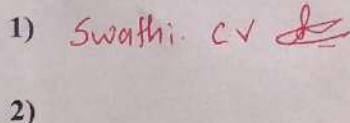 1) Swathi. C V
2)